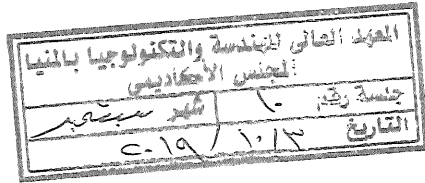 المعهد العالى للهندسة والتكنولوجيا بالمنيا
المجلس الأكاديمى
جلسة رقم ١٠ شهر سبتمبر
التاريخ ٢٠١٩/١٠/٣